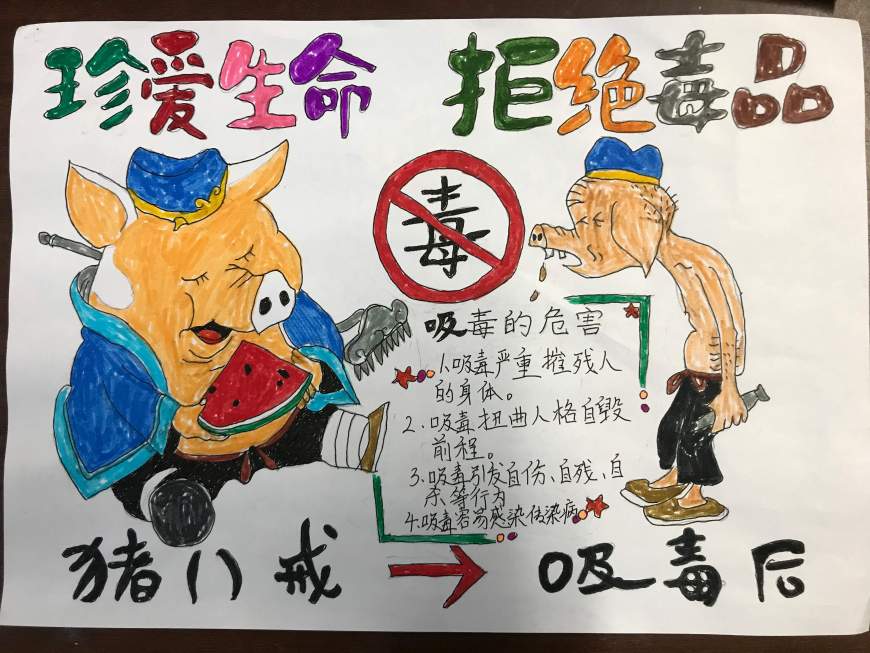 珍爱生命 拒绝毒品
毒
吸毒的危害
1.吸毒严重摧残人
的身体。
2.吸毒扭曲人格自毁
前程。
3.吸毒引发自伤、自残、自
杀等行为
4.吸毒容易感染传染病
猪八戒 → 吸毒后